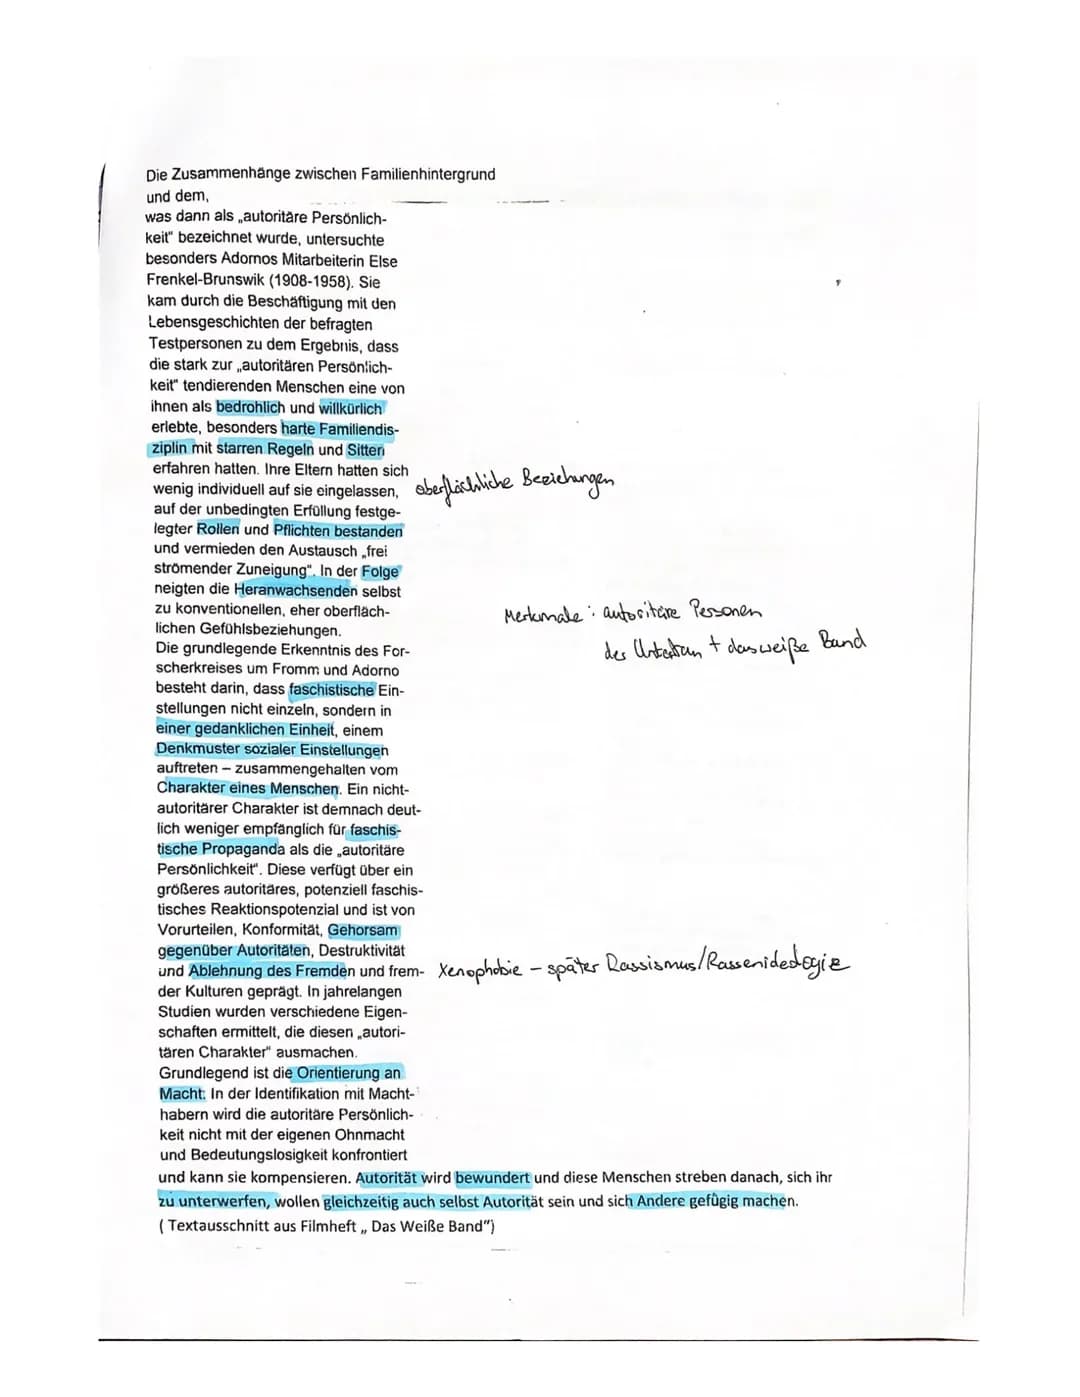 Die Zusammenhänge zwischen Familienhintergrund
und dem,
was dann als „autoritäre Persönlich-
keit" bezeichnet wurde, untersuchte
besonders Adornos Mitarbeiterin Else
Frenkel-Brunswik (1908-1958). Sie
kam durch die Beschäftigung mit den
Lebensgeschichten der befragten
Testpersonen zu dem Ergebnis, dass
die stark zur „autoritären Persönlich-
keit" tendierenden Menschen eine von
ihnen als bedrohlich und willkürlich
erlebte, besonders harte Familiendis-
ziplin mit starren Regeln und Sitten
erfahren hatten. Ihre Eltern hatten sich
wenig individuell auf sie eingelassen, oberflächliche Beziehungen
auf der unbedingten Erfüllung festge-
legter Rollen und Pflichten bestanden
und vermieden den Austausch „frei
strömender Zuneigung". In der Folge
neigten die Heranwachsenden selbst
zu konventionellen, eher oberfläch- Merkmale: autoritäre Personen
lichen Gefühlsbeziehungen.
Die grundlegende Erkenntnis des For- der Untertan + das weiße Band
scherkreises um Fromm und Adorno
besteht darin, dass faschistische Ein-
stellungen nicht einzeln, sondern in
einer gedanklichen Einheit, einem
Denkmuster sozialer Einstellungen
auftreten – zusammengehalten vom
Charakter eines Menschen. Ein nicht-
autoritärer Charakter ist demnach deut-
lich weniger empfänglich für faschis-
tische Propaganda als die „autoritäre
Persönlichkeit". Diese verfügt über ein
größeres autoritäres, potenziell faschis-
tisches Reaktionspotenzial und ist von
Vorurteilen, Konformität, Gehorsam
gegenüber Autoritäten, Destruktivität
und Ablehnung des Fremden und frem- Xenophobie – später Rassismus/Rassenideologie
der Kulturen geprägt. In jahrelangen
Studien wurden verschiedene Eigen-
schaften ermittelt, die diesen „autori-
tären Charakter" ausmachen.
Grundlegend ist die Orientierung an
Macht. In der Identifikation mit Macht-
habern wird die autoritäre Persönlich-
keit nicht mit der eigenen Ohnmacht
und Bedeutungslosigkeit konfrontiert
und kann sie kompensieren. Autorität wird bewundert und diese Menschen streben danach, sich ihr
zu unterwerfen, wollen gleichzeitig auch selbst Autorität sein und sich Andere gefügig machen.
( Textausschnitt aus Filmheft „ Das Weiße Band")